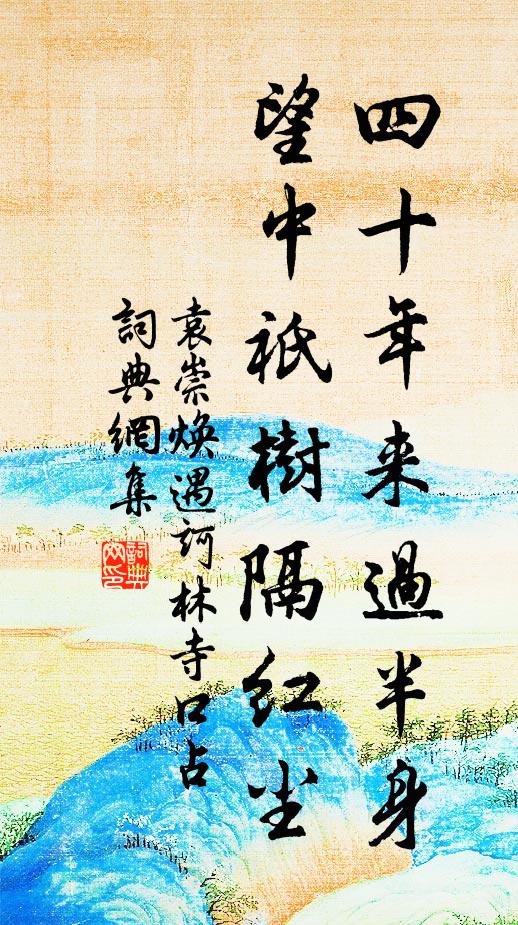 四十年来過半身
望中祇樹隔紅尘
袁崇焕遇訶林寺口占
詞典網集
詞典网印